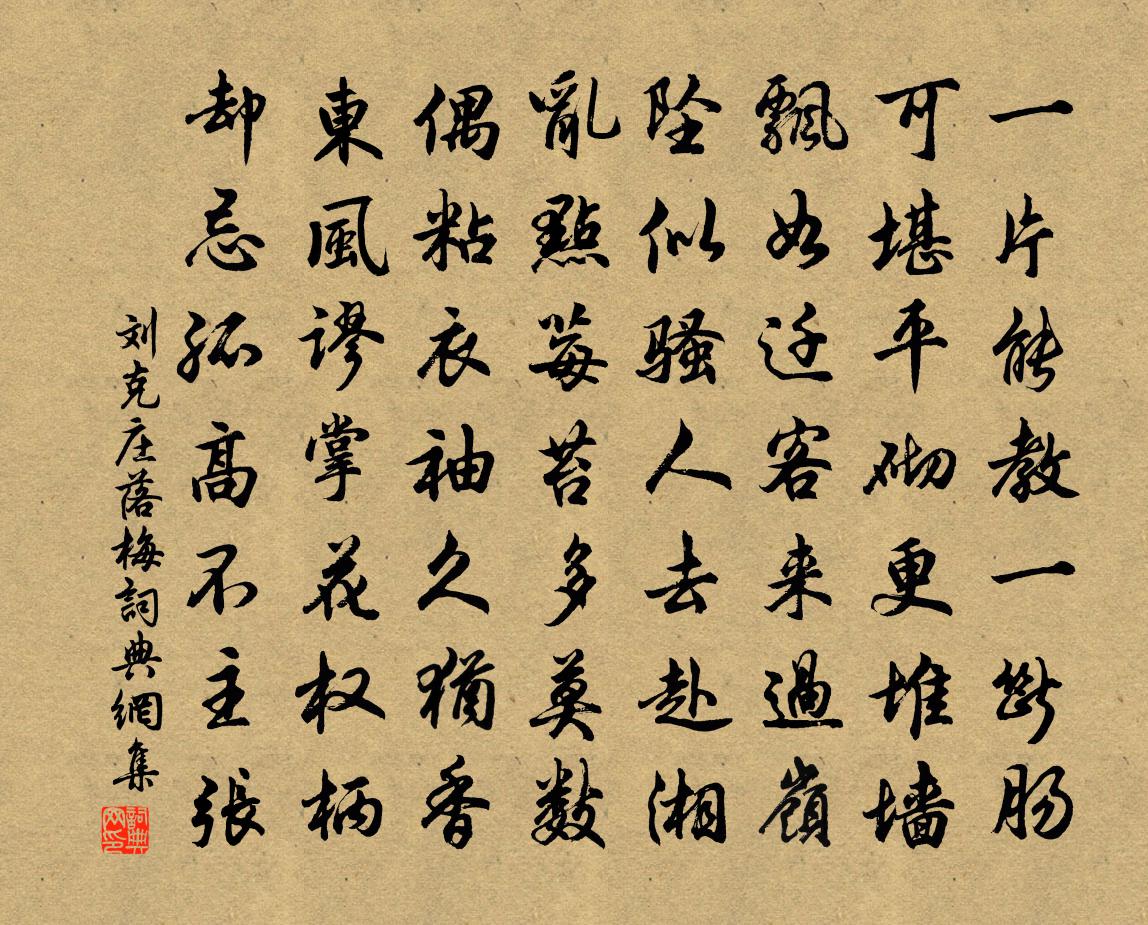 一片能教一斷肠
可堪平砌更堆墙
飄如迁客来過嶺
坠似骚人去赴湘
亂點莓苔多莫数
偶粘衣袖久猶香
東風謬掌花权柄
却忌孤高不主張
刘克庄落梅詞典網集
詞典网印